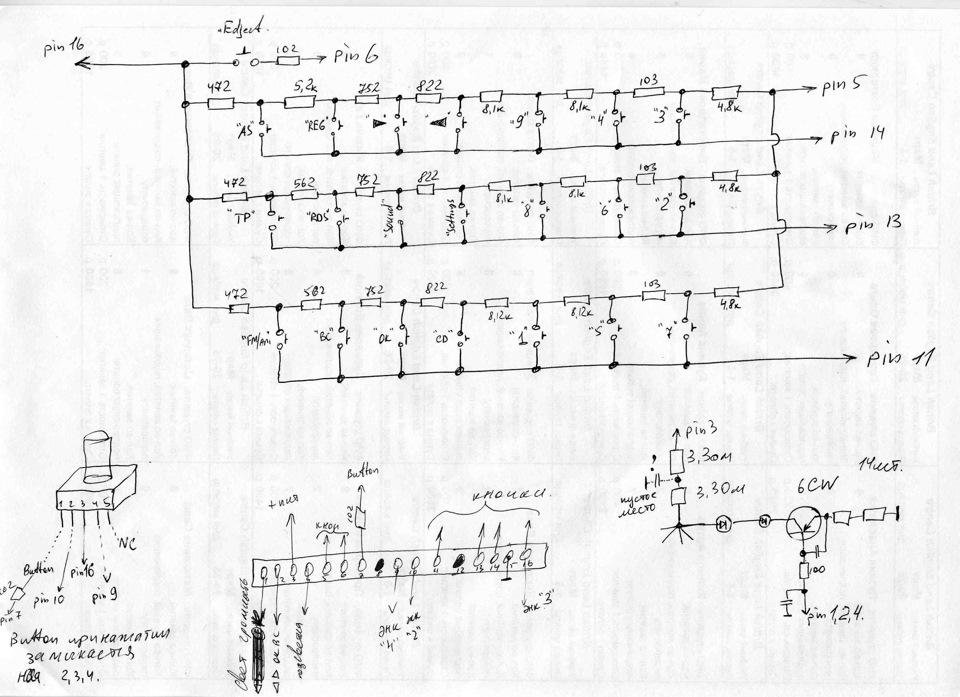 "Edject.
pin 16
102
pin 6
472 5,2к 752 822 8,1к 8,1к 103 4,8к
pin 5
"AS" "REG "9" "4" "3"
pin 14
472 562 752 822 8,1к 8,1к 103 4,8к
"TP" "RDS" "Sound" "Settings "8" "6" "2"
pin 13
472 562 752 822 8,12к 8,12к 103 4,8к
"FM/AM "BC" "OK" "CD" "1" "5" "7"
pin 11
1 2 3 4 5
NC
Button
102
pin 7
pin 10
pin 16
pin 9
Button при нажатии
замыкается
2,3,4.
+ пит
кнои
Button
102
кнопки
1 2 3 4 5 6 7 8 9 10 11 12 13 14 15 16
свет громкость
ОК ВС
подсветка
энк "4"
энк "2"
энк "3"
pin 3
3,3 Ом
!
пустое
место
3,3 Ом
6CW
14шт.
100
pin 1,2,4.